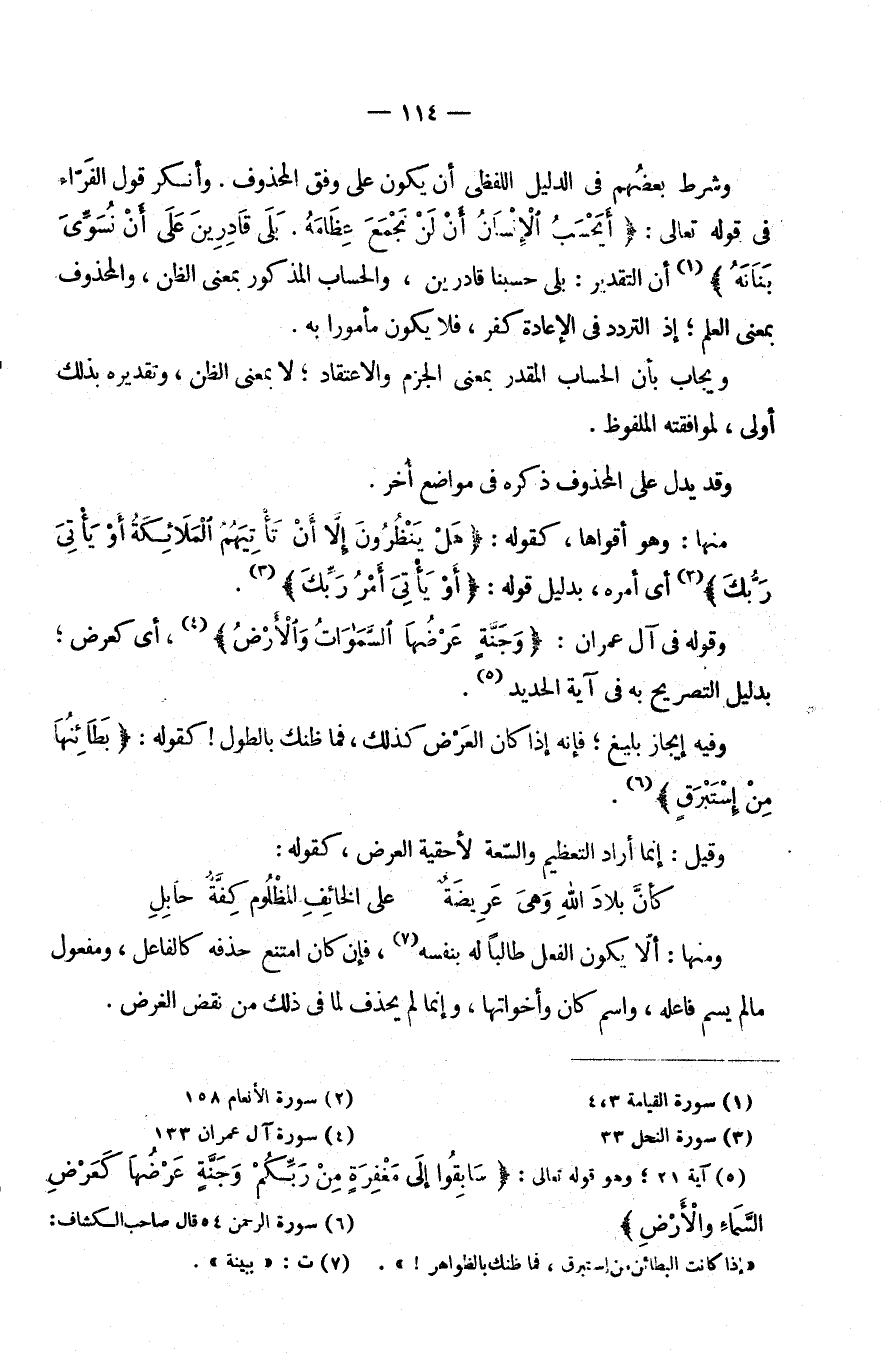 — ١١٤ —
وشرط بعضُهم فى الدليل اللفظى أن يكون على وفق المحذوف . وأنكر قول الفَرّاء
فى قوله تعالى : ﴿ أَيَحْسَبُ ٱلْإِنْسَانُ أَنْ لَنْ نَجْمَعَ عِظَامَهُ . بَلَى قَادِرِينَ عَلَى أَنْ نُسَوِّىَ
بَنَانَهُ ﴾ (١) أن التقدير : بلى حسبنا قادرين ، والحساب المذكور بمعنى الظن ، والمحذوف
بمعنى العلم ؛ إذ التردد فى الإعادة كفر ، فلا يكون مأمورا به .
ويجاب بأن الحساب المقدر بمعنى الجزم والاعتقاد ؛ لا بمعنى الظن ، وتقديره بذلك
أولى ، لموافقته الملفوظ .
وقد يدل على المحذوف ذكره فى مواضع أُخر .
منها : وهو أقواها ، كقوله : ﴿ هَلْ يَنْظُرُونَ إِلَّا أَنْ تَأْتِيَهُمُ ٱلْمَلَائِكَةُ أَوْ يَأْتِىَ
رَبُّكَ ﴾(٢) أى أمره ، بدليل قوله : ﴿ أَوْ يَأْتِىَ أَمْرُ رَبِّكَ ﴾ (٣) .
وقوله فى آل عمران : ﴿ وَجَنَّةٍ عَرْضُهَا ٱلسَّمٰوَاتُ وَٱلْأَرْضُ ﴾ (٤) ، أى كعرض ؛
بدليل التصريح به فى آية الحديد (٥) .
وفيه إيجاز بليغ ؛ فإنه إذا كان العَرْض كذلك ، فما ظنك بالطول ! كقوله : ﴿ بَطَائِنُهَا
مِنْ إِسْتَبْرَقٍ ﴾ (٦) .
وقيل : إنما أراد التعظيم والسّعة لأحقية العرض ، كقوله :
كأنَّ بلادَ اللهِ وَهىَ عَرِيضَةٌ على الخائِفِ المظلُومِ كِفَّةُ حابِلِ
ومنها : ألّا يكون الفعل طالباً له بنفسه(٧) ، فإن كان امتنع حذفه كالفاعل ، ومفعول
مالم يسم فاعله ، واسم كان وأخواتها ، وإنما لم يحذف لما فى ذلك من نقض الغرض .
(١) سورة القيامة ٣،٤ (٢) سورة الأنعام ١٥٨
(٣) سورة النحل ٣٣ (٤) سورة آل عمران ١٣٣
(٥) آية ٢١ ؛ وهو قوله تعالى : ﴿ سَابِقُوا إِلَى مَغْفِرَةٍ مِنْ رَبِّكُمْ وَجَنَّةٍ عَرْضُهَا كَعَرْضِ
السَّمَاءِ والْأَرْضِ ﴾ (٦) سورة الرحمن ٥٤ قال صاحب الكشاف:
« إذا كانت البطائن من إستبرق ، فما ظنك بالظواهر ! » . (٧) ت : « ببينة » .